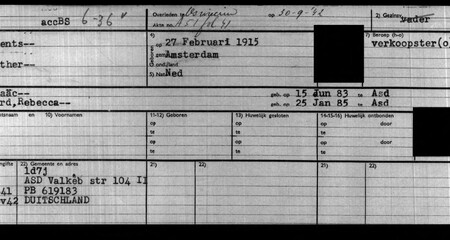 accBS 6-36 Overleden te op 30-9-'42 2) Gezinsv.
Akte no. vader
ents-- 4) op 27 Februari 1915 7) Beroep (h-o)
ther-- gem Amsterdam verkoopster(o
land
5) Nat Ned
geb. op 15 Jun 83 te Asd
rd,Rebecca-- geb. op 25 Jan 85 te Asd
tsnaam en 10) Voornamen 11-12) Geboren 13) Huwelijk gesloten 14-15-16) Huwelijk ontbonden
op op op door
te te te
op op op door
te te te
ngifte 22) Gemeente en adres 21) 22) 21) 22)
1d7j
ASD Valkeb str 104 II
41 PB 619183
v42 DUITSCHLAND